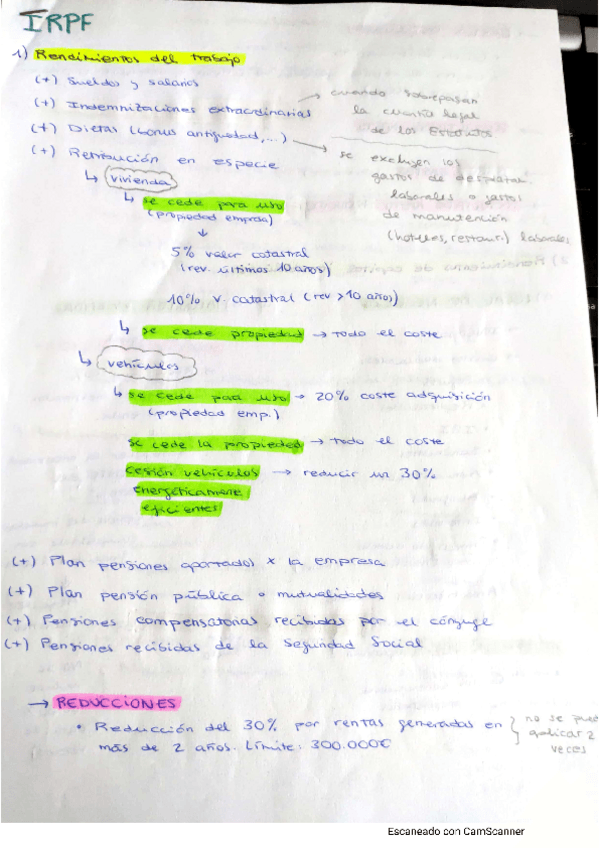 IRPF
1) Rendimientos del trabajo
(+) Sueldos y salarios
(+) Indemnizaciones extraordinarias → cuando sobrepasan
la cuantía legal
de los Estatutos
(+) Dietas (bonus antigüedad,...) → se excluyen los
gastos de desplazam.
laborales o gastos
de manutención
(hoteles, restaur.) laborales
(+) Retribución en especie
↳ vivienda
↳ se cede para uso
(propiedad empresa)
↓
5% valor catastral
(rev. últimos 10 años)
10% v. catastral (rev >10 años)
↳ se cede propiedad → todo el coste
↳ vehículos
↳ se cede para uso → 20% coste adquisición
(propiedad emp.)
se cede la propiedad → todo el coste
cesión vehículos → reducir un 30%
energéticamente
eficientes
(+) Plan pensiones aportados x la empresa
(+) Plan pensión pública o mutualidades
(+) Pensiones compensatorias recibidas por el cónyuge
(+) Pensiones recibidas de la Seguridad Social
→ REDUCCIONES
• Reducción del 30% por rentas generadas en
más de 2 años. Límite: 300.000€
} no se pued
aplicar 2
veces
Escaneado con CamScanner